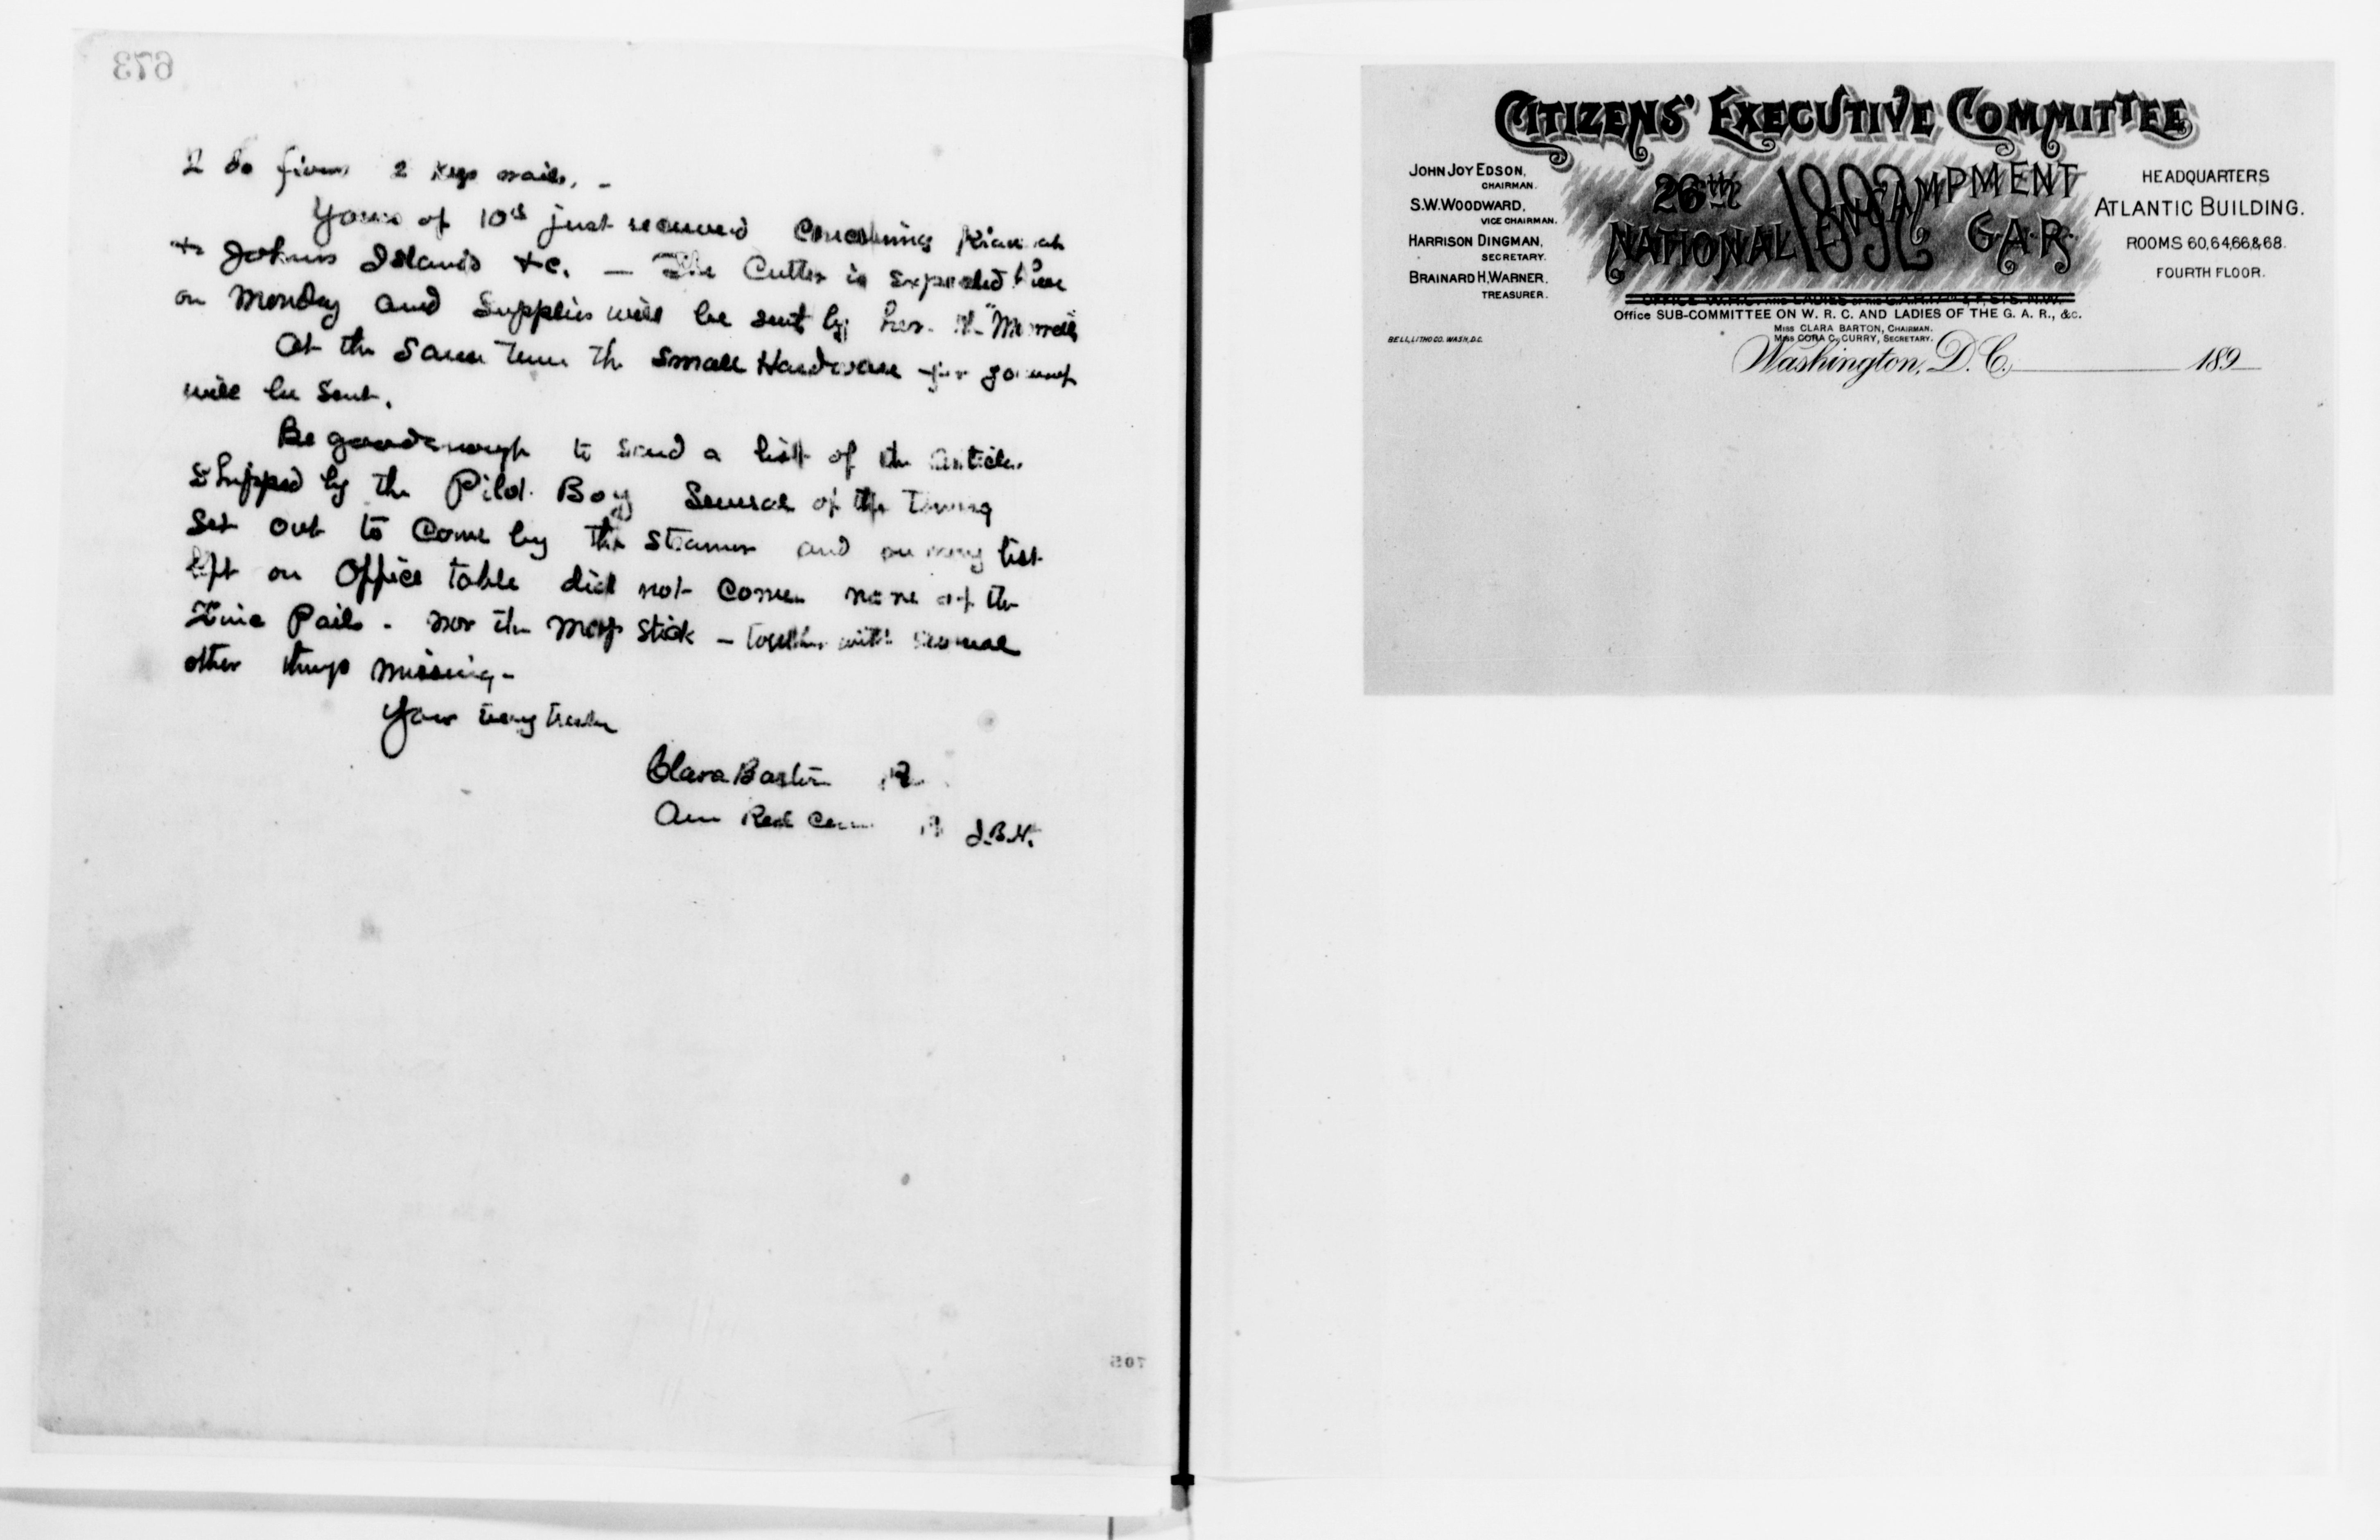 673
2 do fine 2 kegs nails, -
Yours of 10th just received concerning Kiawah
& Johns Island &c. — The Cutter is expected here
on Monday and Supplies will be sent by her. the "Morrill
At the same time the small Hardware for
will be sent.
Be good enough to send a list of the articles
Shipped by the Pilot Boy Several of the things
Set out to come by the steamer and on my list
left on Office table did not come none of the
Zinc Pails - nor the Mop stick - together with several
other things missing -
Yours very truly
Clara Barton
Am Red Cross J.B.H.
705
CITIZENS' EXECUTIVE COMMITTEE
26th NATIONAL 1892 ENCAMPMENT G.A.R.
JOHN JOY EDSON,
CHAIRMAN.
S.W. WOODWARD,
VICE CHAIRMAN.
HARRISON DINGMAN,
SECRETARY.
BRAINARD H. WARNER,
TREASURER.
HEADQUARTERS
ATLANTIC BUILDING.
ROOMS 60,64,66,&68.
FOURTH FLOOR.
OFFICE W.R.C. AND LADIES OF THE G.A.R. 17TH & F. STS. N.W.
Office SUB-COMMITTEE ON W. R. C. AND LADIES OF THE G. A. R., &c.
MISS CLARA BARTON, CHAIRMAN.
MISS CORA C. CURRY, SECRETARY.
BELL LITHO CO. WASH, D.C.
Washington, D.C. 189